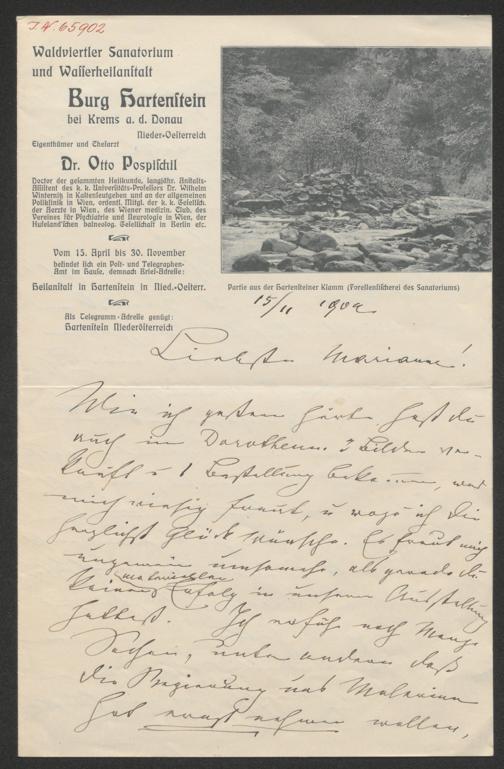 I.N. 65902
Waldviertler Sanatorium
und Wasserheilanstalt
Burg Hartenstein
bei Krems a. d. Donau
Nieder-Oesterreich
Eigenthümer und Chefarzt
Dr. Otto Pospischil
Doctor der gesammten Heilkunde, langjähr. Anstalts-
Assistent des k. k. Universitäts-Professors Dr. Wilhelm
Winternitz in Kaltenleutgeben und an der allgemeinen
Poliklinik in Wien, ordentl. Mitgl. der k. k. Gesellsch.
der Aerzte in Wien, des Wiener medizin. Club, des
Vereines für Psychiatrie und Neurologie in Wien, der
Hufeland'schen balneolog. Gesellschaft in Berlin etc.
Vom 15. April bis 30. November
befindet sich ein Post- und Telegraphen-
Amt im Hause, demnach Brief-Adresse:
Heilanstalt in Hartenstein in Nied.-Oesterr.
Als Telegramm-Adresse genügt:
Hartenstein Niederösterreich
Partie aus der Hartensteiner Klamm (Forellenfischerei des Sanatoriums)
15/11 1909
Liebste Marianne!
Wie ich gestern hörte hast du
auch im Dorotheum 3 Bilder ver-
kauft u 1 Bestellung bekommen, was
mich riesig freut, u wozu ich Dir
herzlichst Glück wünsche. Es freut mich
ungemein umsomehr, als gerade du
keinen materiellen Erfolg in unserer Ausstellung
hattest. Ich erfuhr noch Manche
Sachen, unter andern daß
die Regierung uns Malerinnen
hat ernst nehmen wollen,